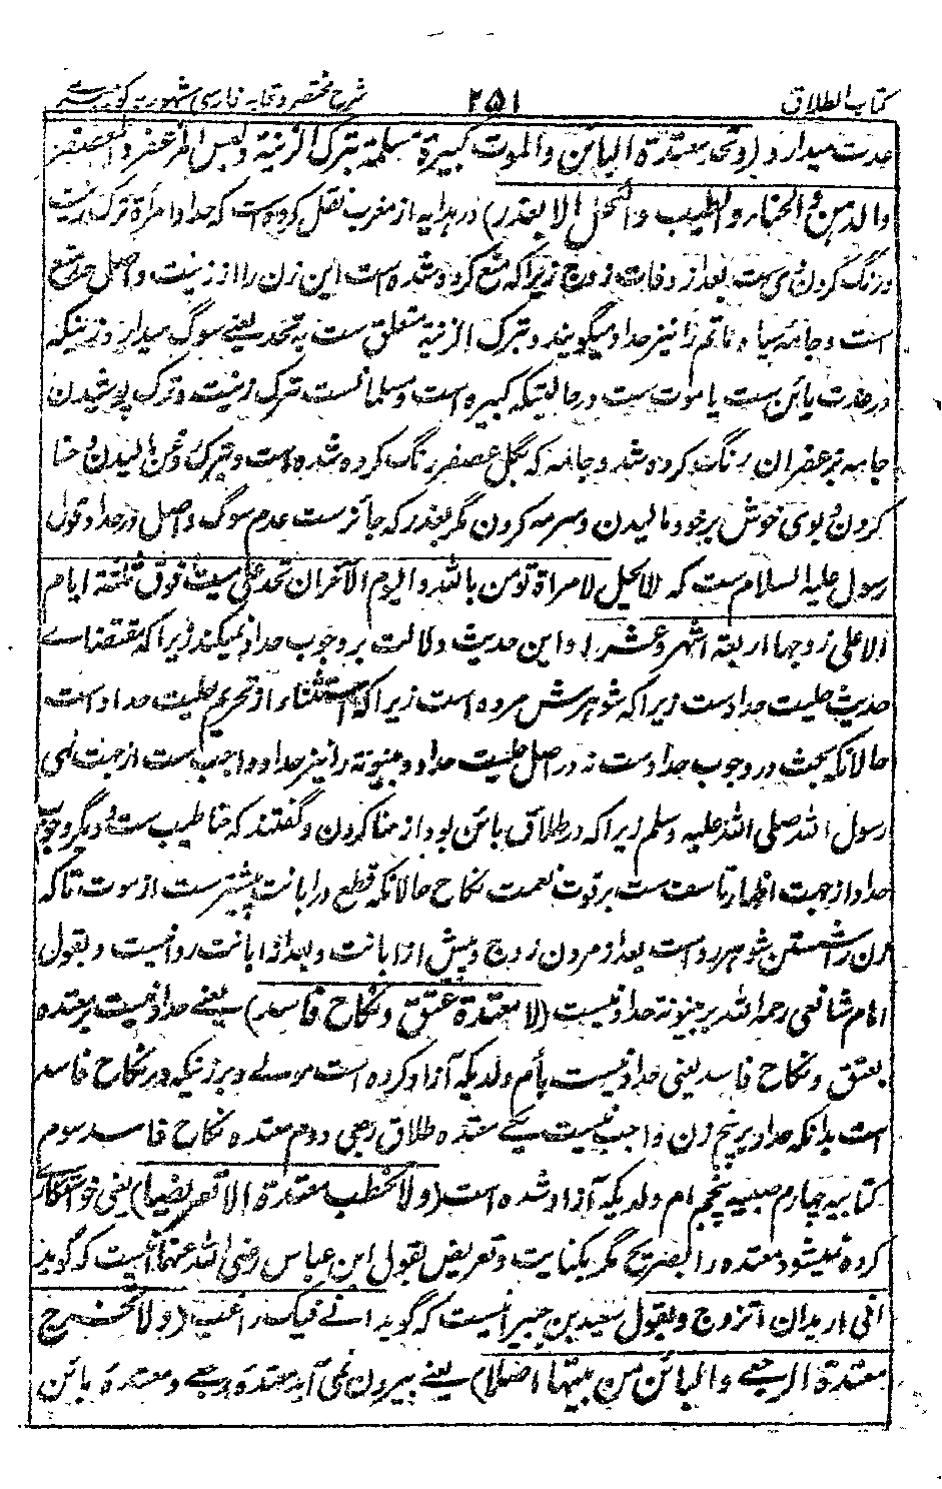 کتاب الطلاق ۲۵۱ شرح مختصر وقایه فارسی مشهور به
عدت میدارد (وتحد معتدة البائن والموت کبیرة مسلمة بترک الزینة ولبس المزعفر والمعصفر
والدهن والحناء والطیب والکحل الا بعذر) در هدایه از مغرب نقل کرده است که حداد امرأة ترک زینت
و رنگ کردن وی ست بعد از وفات زوج زیراکه منع کرده شده است این زن را از زینت و اصل حد منع
است و جامه سیاه ماتم را نیز حداد میگویند و بترک الزینة متعلق ست به تحد یعنے سوگ میدارد زنیکه
در عدت بائن ست یا موت ست در حالتیکه کبیره است و مسلمانست بترک زینت و ترک پوشیدن
جامه بزعفران رنگ کرده شد و جامه که بگل عصفر رنگ کرده شده است و بترک روغن مالیدن و حنا
کردن و بوی خوش برخود مالیدن و سرمه کردن مگر بعذر که جائز ست عدم سوگ و اصل در حداد قول
رسول علیه السلام ست که لا یحل لامرأة تومن بالله والیوم الآخر ان تحد علی میت فوق ثلثة ایام
الا علی زوجها اربعة اشهر وعشرا و این حدیث دلالت بر وجوب حداد نمیکند زیراکه مقتضاے
حدیث حلیت حدادست زیراکه شوهرش مرده است زیراکه استثناء از تحریم حلیت حداد است
حالانکه بحث در وجوب حدادست نه در اصل حلیت حداد و مبتوته را نیز حداد واجب ست از جهت نهی
رسول الله صلی الله علیه وسلم زیراکه در طلاق بائن بود از حنا کردن و گفتند که حنا طیب ست و دیگر وجوب
حداد از جهت اظهار تاسف ست بر فوت نعمت نکاح حالانکه قطع در ابانت بیشترست از موت تا که
زن را شستن شوهر رواست بعد از مردن زوج و پیش از ابانت و بعد از ابانت روا نیست و بقول
امام شافعی رحمه الله بر مبتوته حداد نیست (لا معتدة عتق ونکاح فاسد) یعنے حداد نیست بر معتده
بعتق و نکاح فاسد یعنی حداد نیست بام ولدیکه آزاد کرده است مولے و بر زنیکه در نکاح فاسد
است بدانکه حداد بر پنج زن واجب نیست یکے معتده طلاق رجعی دوم معتده نکاح فاسد سوم
کتابیه چهارم صبیه پنجم ام ولدیکه آزاد شده است (ولا تخطب معتدة الا تعریضا) یعنی خواستگاری
کرده نمیشود معتده را بصریح مگر بکنایت و تعریض بقول ابن عباس رضی الله عنهما نیست که گوید
انی ارید ان اتزوج و بقول سعید بن جبیر اینست که گوید انے فیک راغب (ولا تخرج
معتدة الرجعے والبائن من بیتها اصلا) یعنے بیرون نمی آید معتده رجعے و معتده بائن